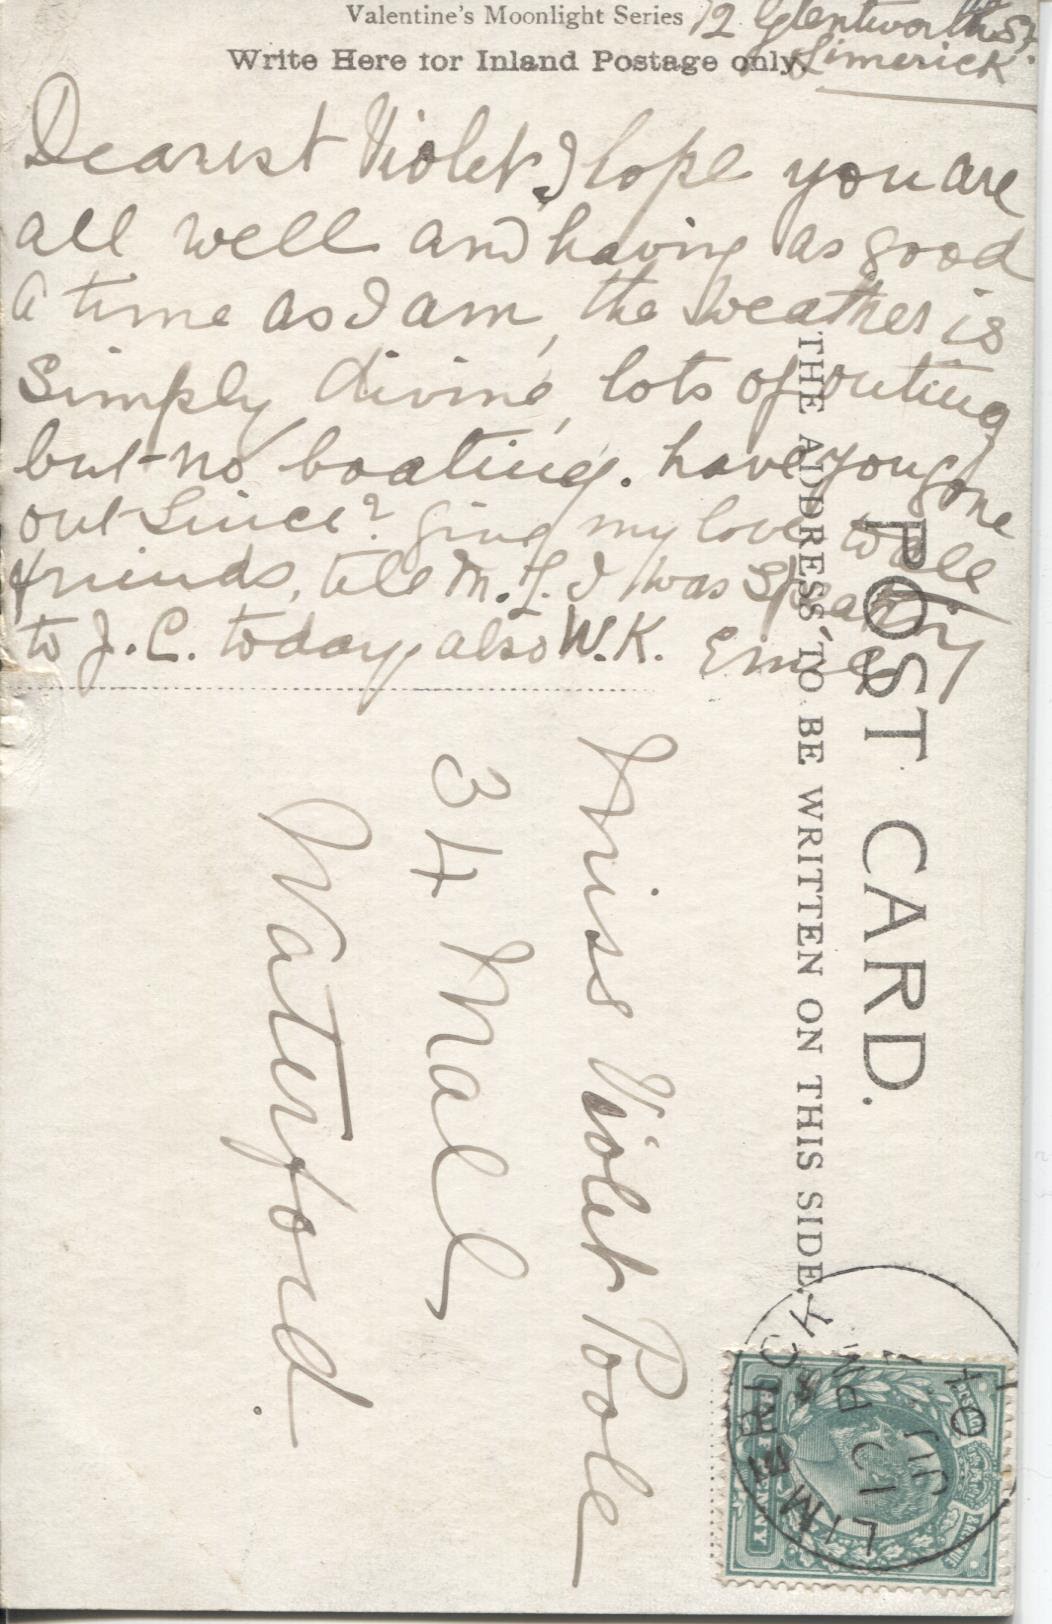 Valentine's Moonlight Series
Write Here for Inland Postage only.
12 Glentworth St.
Limerick
Dearest Violet, I hope you are
all well and having as good
a time as I am, the weather is
simply divine, lots of outing,
but no boating. have you gone
out since? give my love to all
friends, tell M. J. I was speaking
to J. C. today, also W.K. Emily
POST CARD.
THE ADDRESS TO BE WRITTEN ON THIS SIDE.
Miss Violet Poole
34 Mall
Waterford
LIMERICK
PM
JU
04
POSTAGE
& REVENUE
HALFPENNY